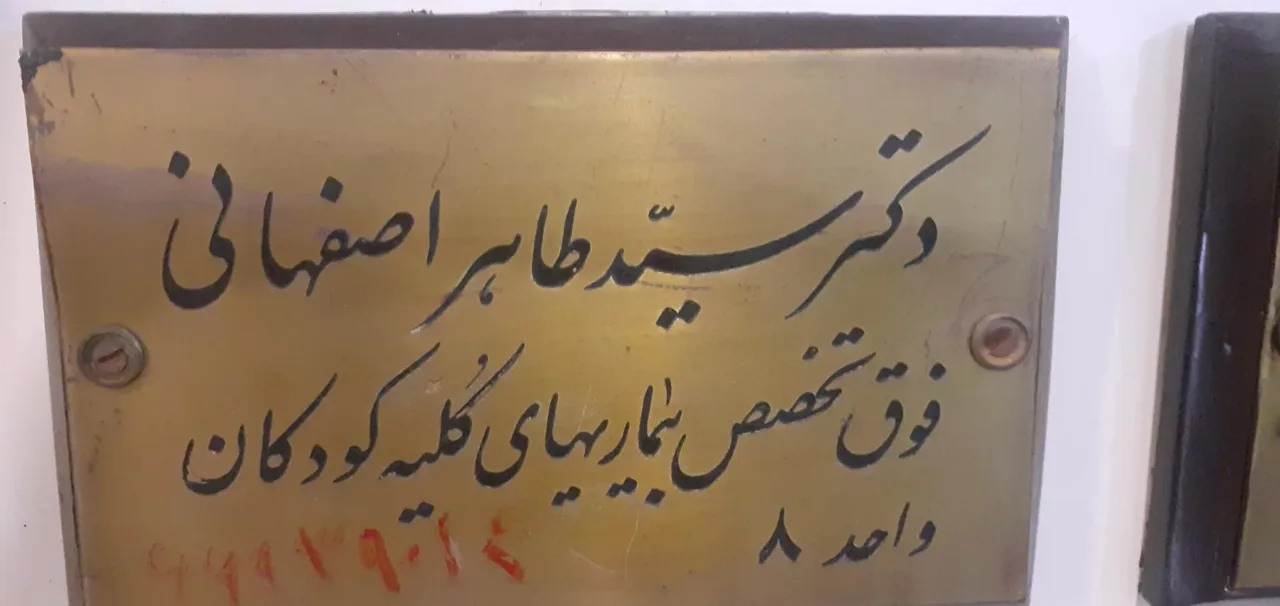 دکتر سیّد طاهر اصفهانی
فوق تخصص بیماریهای کُلیه کودکان
واحد ۸